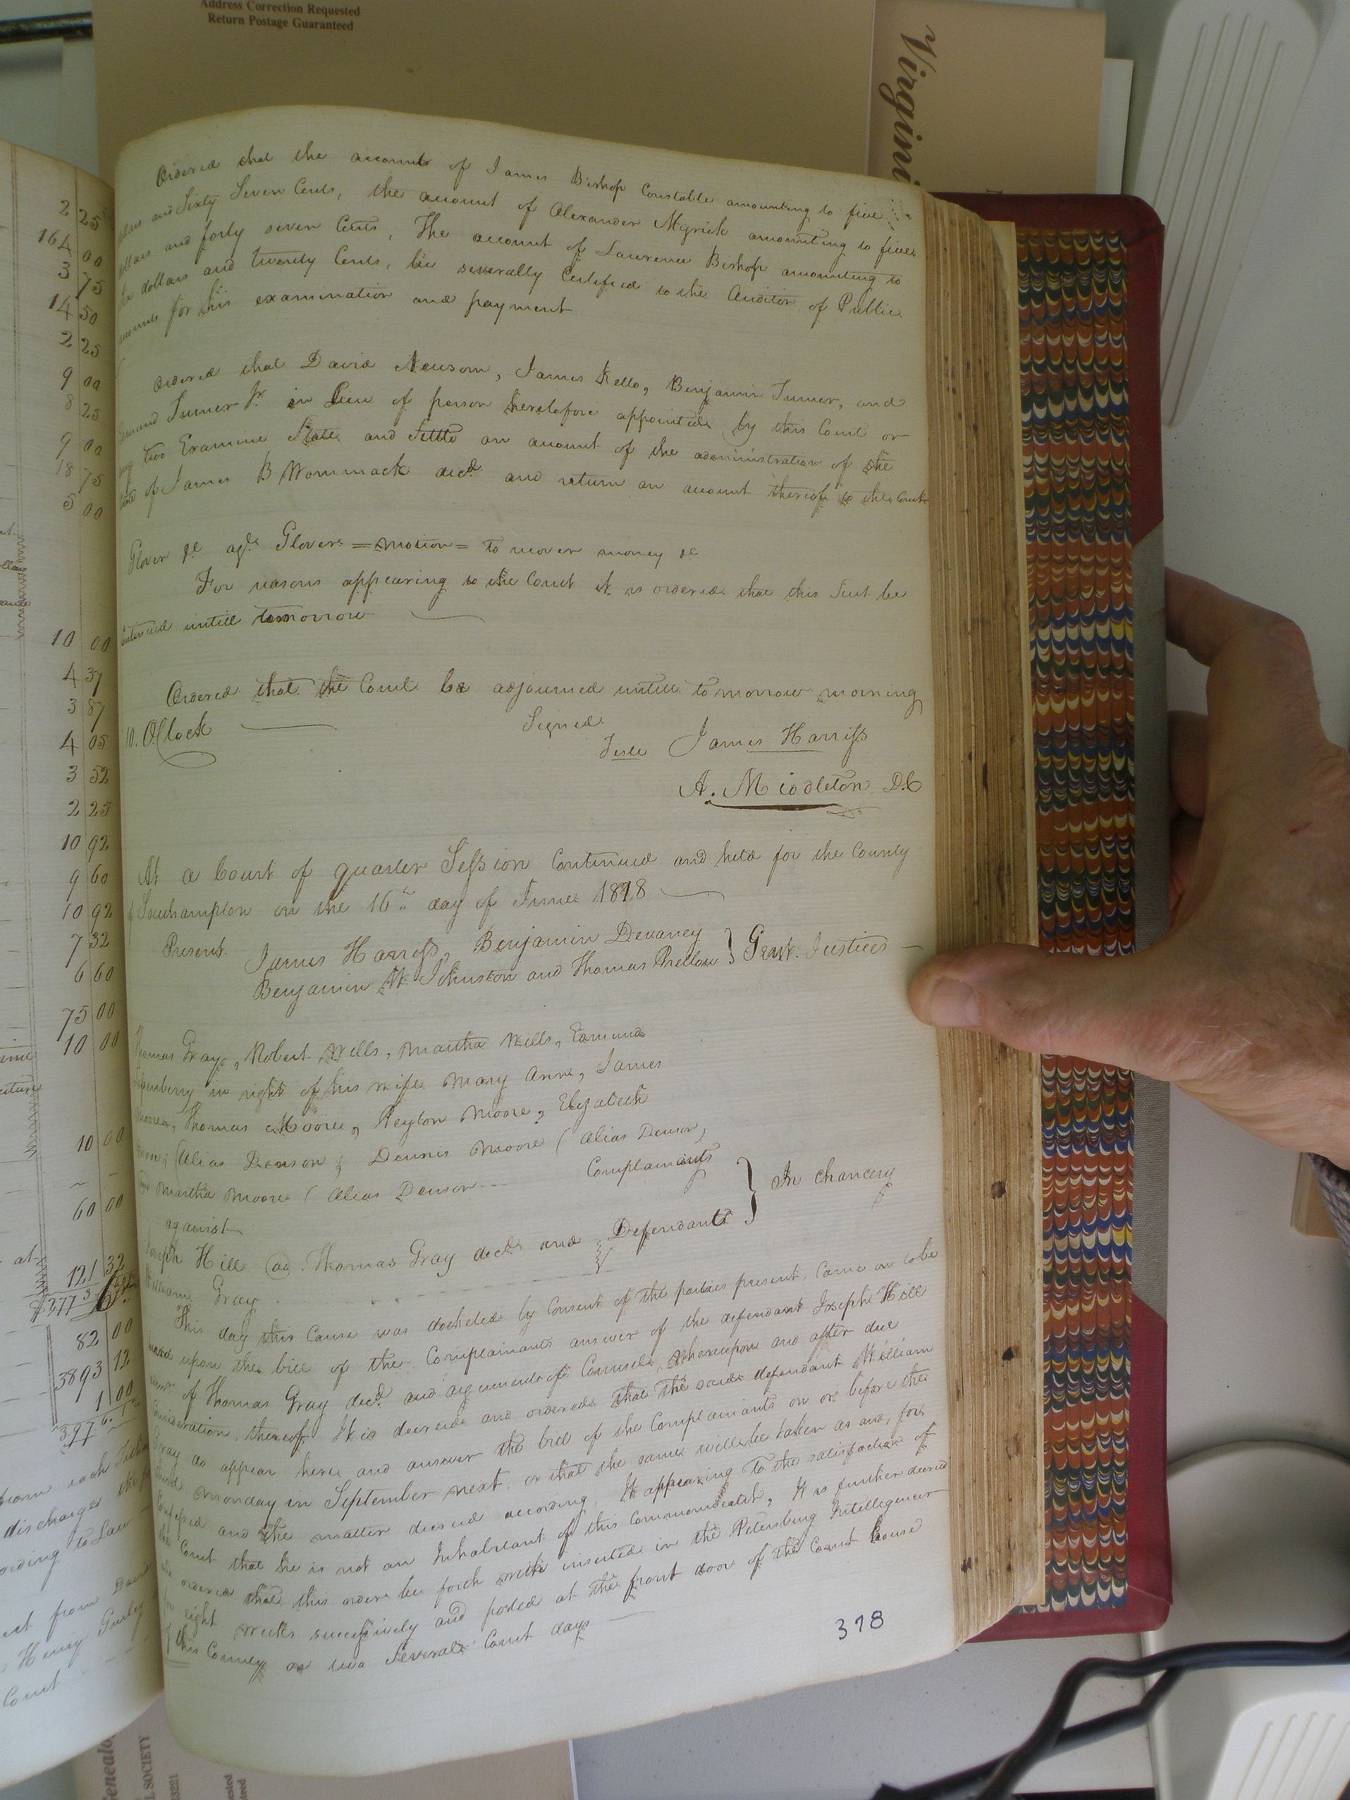 Address Correction Requested
Return Postage Guaranteed
Virgini
Ordered that the accounts of James Bishop Constable amounting to five
dollars and Sixty Seven Cents, the account of Alexander Myrick amounting to five
dollars and forty seven Cents, The account of Laurence Bishop amounting to
dollars and twenty Cents, be severally Certified to the Auditor of Public
for his examination and payment
Ordered that David Newsom, James Kello, Benjamin Turner, and
Turner Jr. in Lieu of person heretofore appointed by this Court or
any two Examine State and Settle an account of the administration of the
of James B Wommack decd. and return an account thereof to the Court
Glover &c agt. Glovers = motion = to recover money &c
For reasons appearing to the Court it is ordered that this Suit be
continued untill tomorrow
Ordered that the Court be adjourned untill tomorrow morning
10. OClock
Signed
Teste James Harriss
A. Middleton D.C
At a Court of quarter Session Continued and held for the County
of Southampton on the 16th day of June 1818
Present James Harriss, Benjamin Devaney
Benjamin W. Johnston and Thomas Pretlow } Gent. Justices
Thomas Gray, Robert Wills, Martha Wills, Edmund
in right of his wife Mary Anne, James
Moore, Thomas Moore, Peyton Moore, Elizabeth
Moore, (Alias Denson, Dennis Moore (Alias Denson,
and Martha Moore (Alias Denson
Complainants
against
} In Chancery
Joseph Hill ad. Thomas Gray decd. and Defendants
William Gray
This day this Cause was docketed by Consent of the parties present Came on to be
heard upon the bill of the Complainants answer of the defendant Joseph Hill
of Thomas Gray decd. and arguments of Counsel, Whereupon and after due
Consideration thereof It is decreed and ordered that the said defendant William
Gray do appear here and answer the bill of the Complainants on or before the
monday in September next. or that the same will be taken as and for
Confessed and the matter decreed according. It appearing to the satisfaction of
the Court that he is not an Inhabitant of this Commonwealth, It is further decreed
and ordered that this order be forth with inserted in the Petersburg Intelligencer
for eight weeks successively and posted at the front door of the Court house
of this County on two Several Court days
378
2 25
164 00
3 75
14 50
2 25
9 00
8 25
9 00
18 75
5 00
10 00
4 37
3 87
4 05
3 52
2 25
10 92
9 60
10 92
7 32
6 60
75 00
10 00
10 00
60 00
at
121 32
82 00
3893 12
1 00
from each
discharges the
according to Law
from David
Henry Gurley
Court
Genealo
L SOCIETY